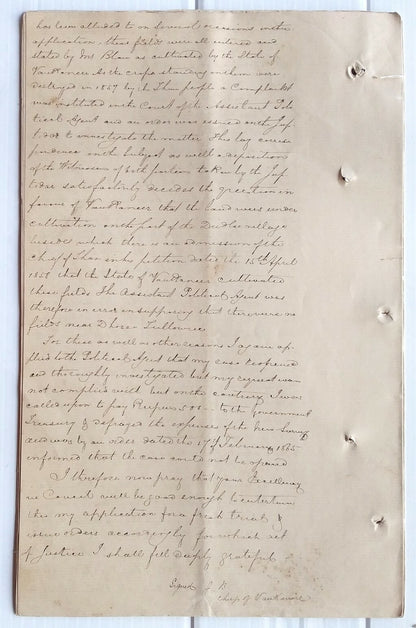 has been alluded to on several occasions in the
application, these fields were all entered and
stated by Mr Blair as cultivated by the State of
Vankaneer. As the crops standing on them were
destroyed in 1857 by the Than people a Complaint
was instituted in the Court of the Assistant Poli
tical Agent and an order was issued on the Jup
to investigate the matter. This long corres
pondence on the subject as well as depositions
of the Witnesses of both parties taken by the Jup
satisfactorily decides the question in
favour of Vankaneer that the land were under
cultivation on the part of the village
besides which there is an admission of the
Chief of Than in his petition dated the 15th April
1858 that the State of Vankaneer cultivated
these fields. The Assistant Political Agent was
therefore in error in supposing that there were no
fields near
For these as well as other reasons I again ap
plied to the Political Agent that my case be opened
and thoroughly investigated but my request was
not complied with but on the contrary I was
called upon to pay Rupees to the government
Treasury & defrayed the expenses of the new Survey
and was by an order dated the 17th February 1865
informed that the case could not be opened
I therefore now pray that your Excellency
in Council will be good enough to entertain
this my application for a fresh trial &
issue orders accordingly for which act
of Justice I shall feel deeply grateful
Signed
Chief of Vankaneer